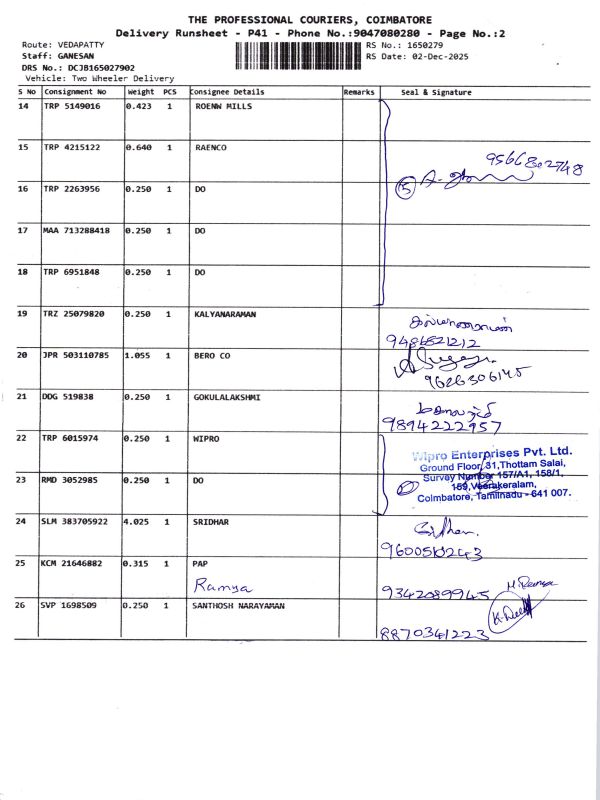 THE PROFESSIONAL COURIERS, COIMBATORE
Delivery Runsheet - P41 - Phone No.:9047080280 - Page No.:2
Route: VEDAPATTY RS No.: 1650279
Staff: GANESAN RS Date: 02-Dec-2025
DRS No.: DCJB165027902
Vehicle: Two Wheeler Delivery
S No Consignment No Weight PCS Consignee Details Remarks Seal & Signature
14 TRP 5149016 0.423 1 ROENW MILLS
15 TRP 4215122 0.640 1 RAENCO
9566802748
5
16 TRP 2263956 0.250 1 DO
17 MAA 713288418 0.250 1 DO
18 TRP 6951848 0.250 1 DO
19 TRZ 25079820 0.250 1 KALYANARAMAN
9486821212
20 JPR 503110785 1.055 1 BERO CO
9626306145
21 DDG 519838 0.250 1 GOKULALAKSHMI
9894222957
22 TRP 6015974 0.250 1 WIPRO
Wipro Enterprises Pvt. Ltd.
Ground Floor, 31,Thottam Salai,
Survey Number 157/A1, 158/1,
159,Veerakeralam,
Coimbatore, Tamilnadu - 641 007.
23 RMD 3052985 0.250 1 DO
24 SLM 383705922 4.025 1 SRIDHAR
Sridhar
9600510243
25 KCM 21646882 0.315 1 PAP
Ramya
M. Ramya
9342089945
26 SVP 1698509 0.250 1 SANTHOSH NARAYAMAN
8870341223